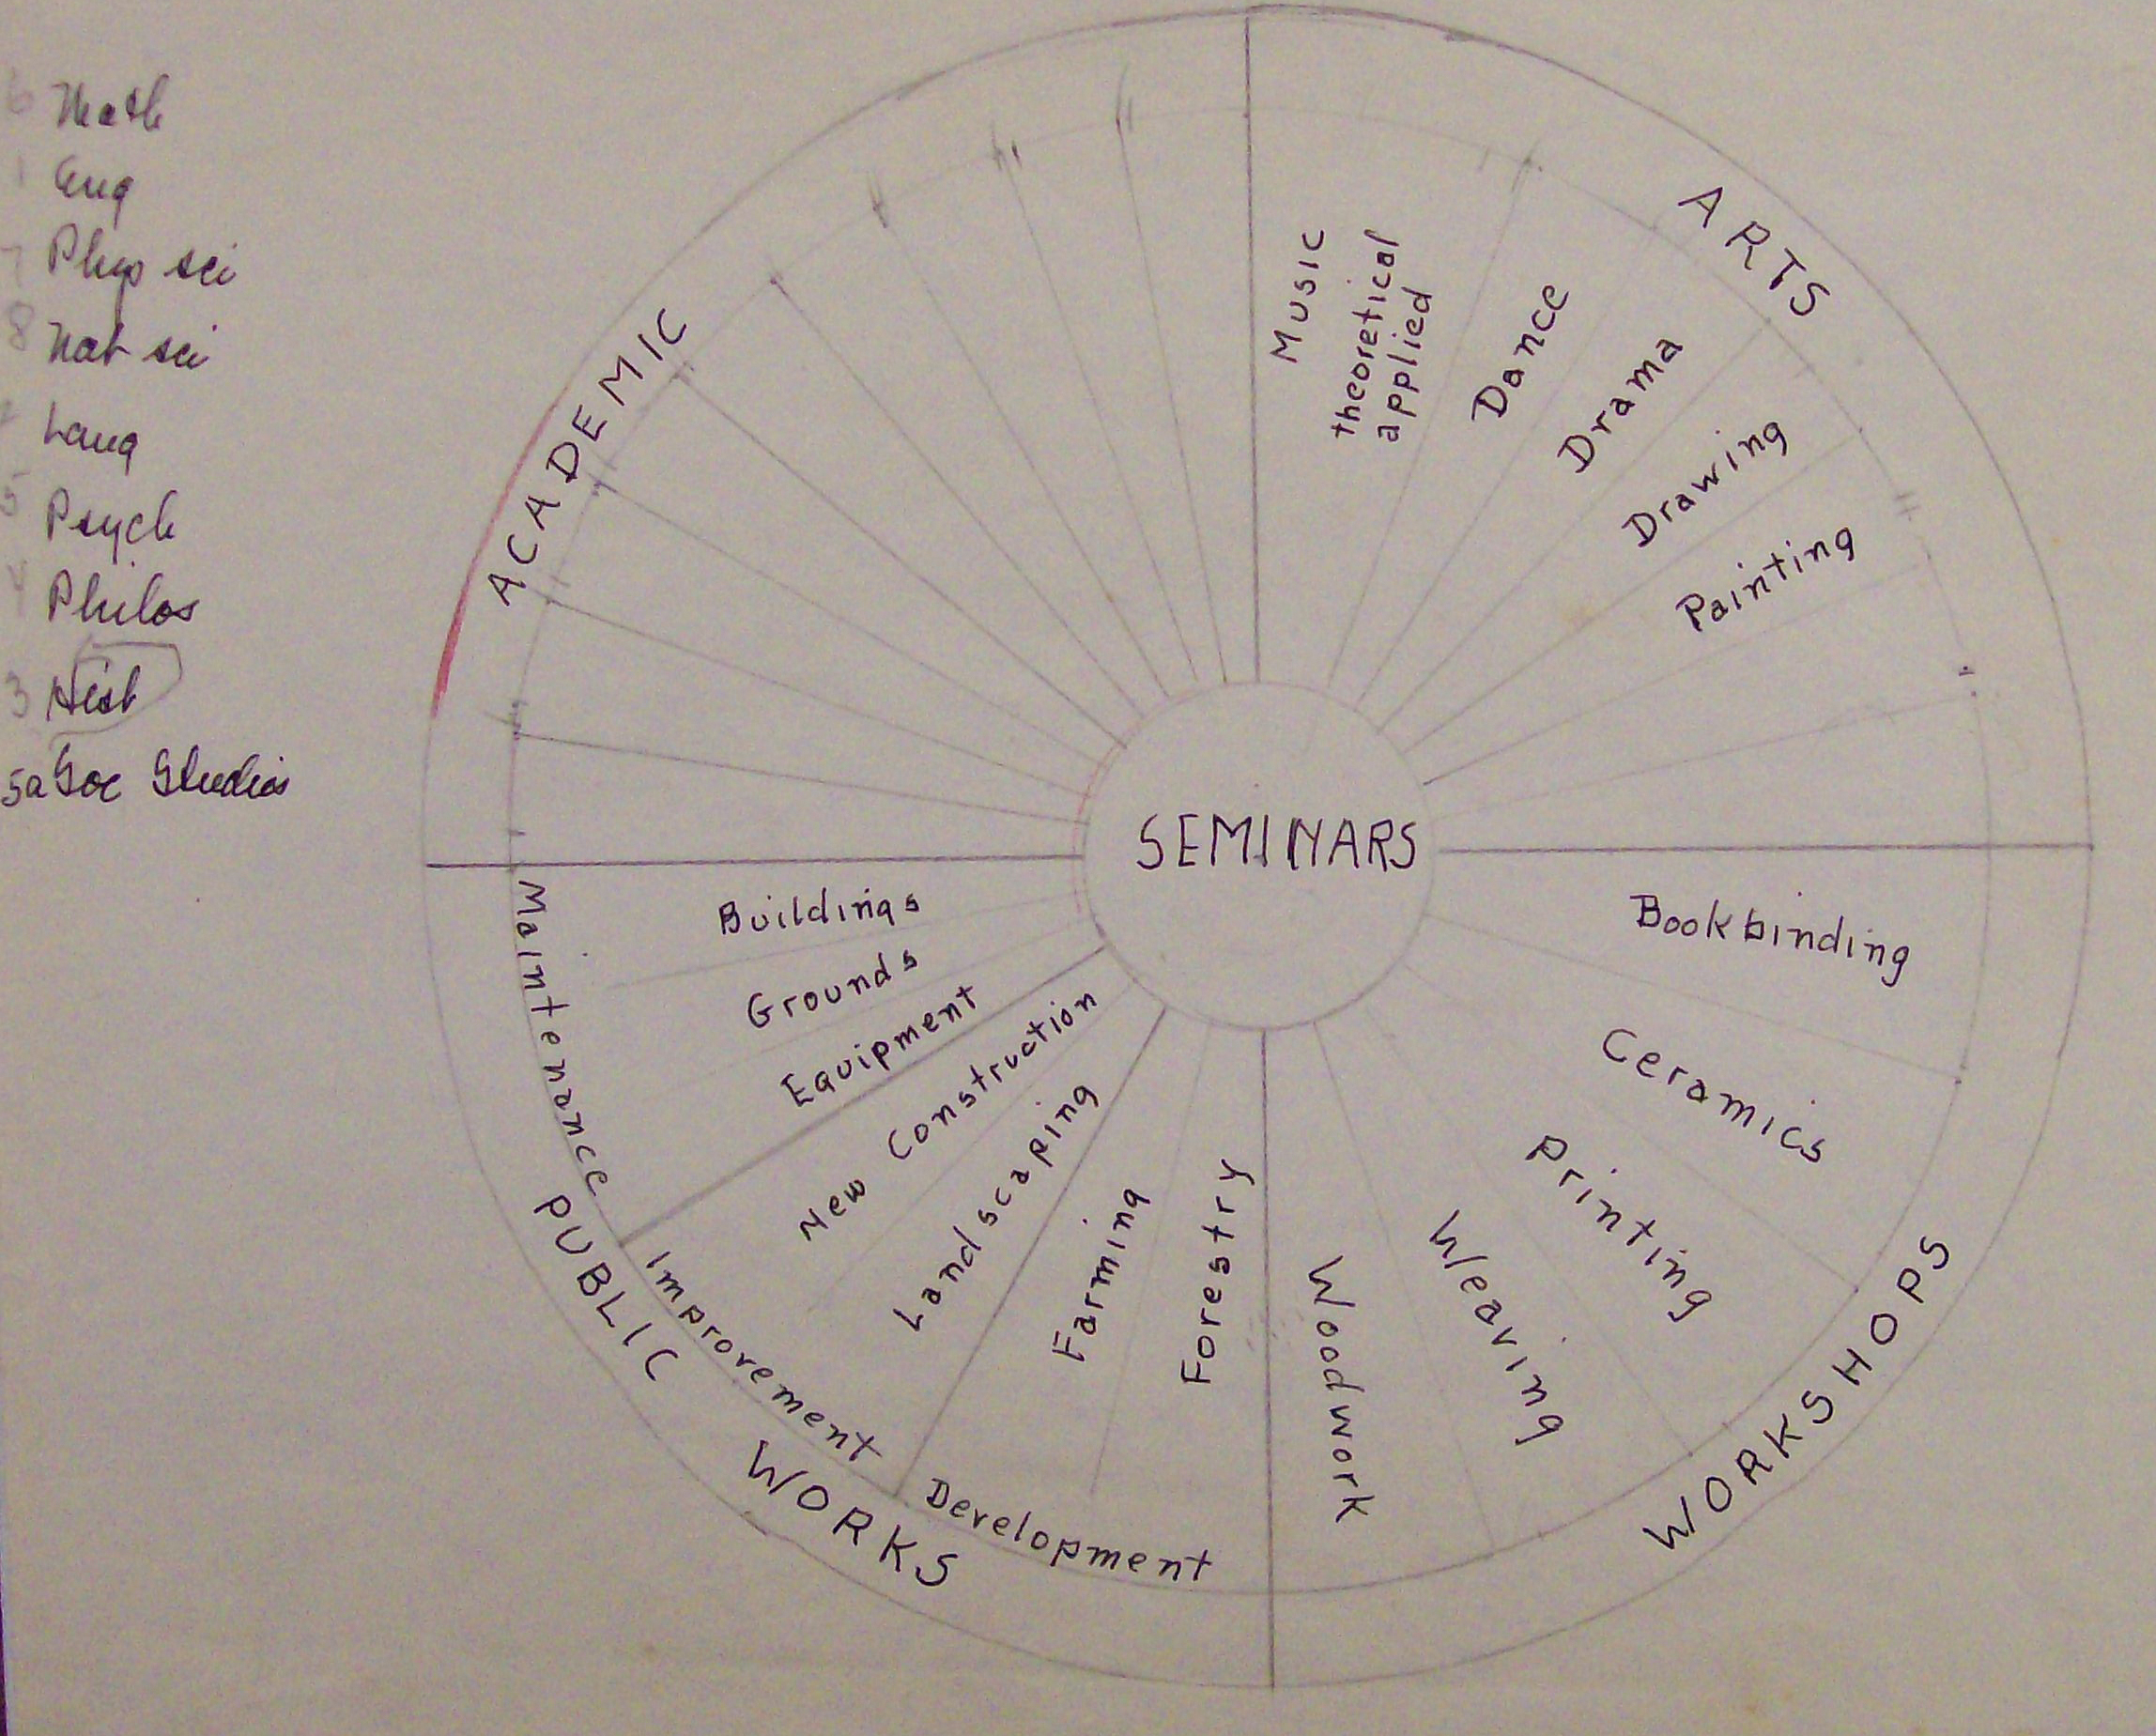 6 Math
1 Eng
7 Phys sci
8 Nat sci
Lang
5 Psych
4 Philos
3 Hist
5a Soc Studies
ACADEMIC
ARTS
Music
theoretical
applied
Dance
Drama
Drawing
Painting
SEMINARS
Bookbinding
Ceramics
Printing
Weaving
Woodwork
WORKSHOPS
Buildings
Grounds
Equipment
Maintenance
New Construction
Landscaping
Improvement
Farming
Forestry
Development
PUBLIC WORKS